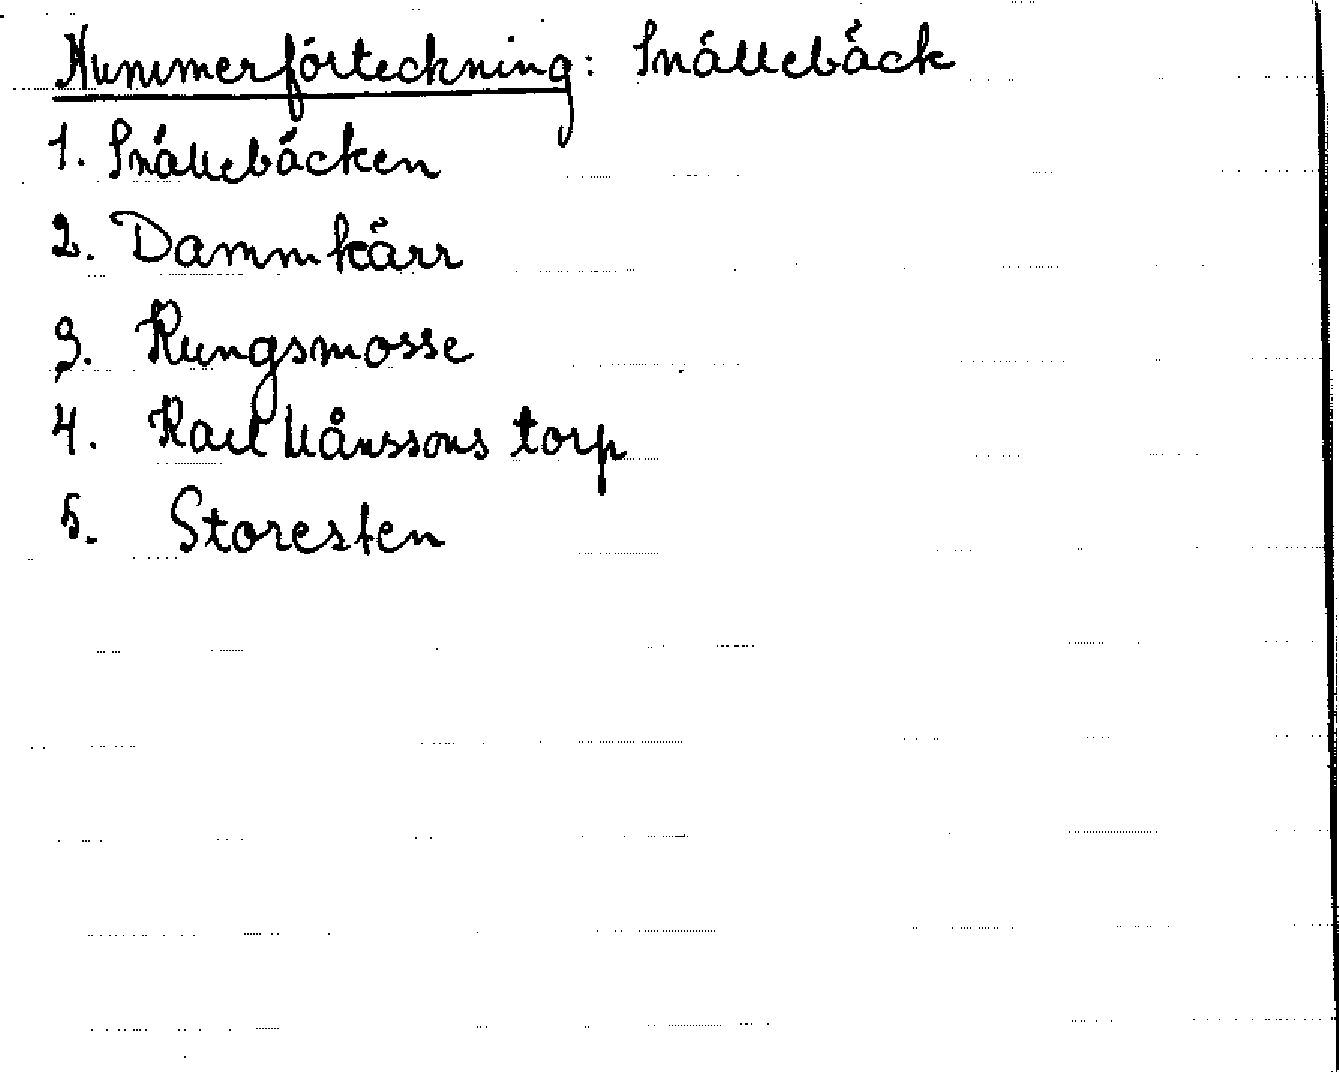 Nummerförteckning: Snällebäck
1. Snällebäcken
2. Dammkärr
3. Kungsmosse
4. Karl Månssons torp
5. Storesten